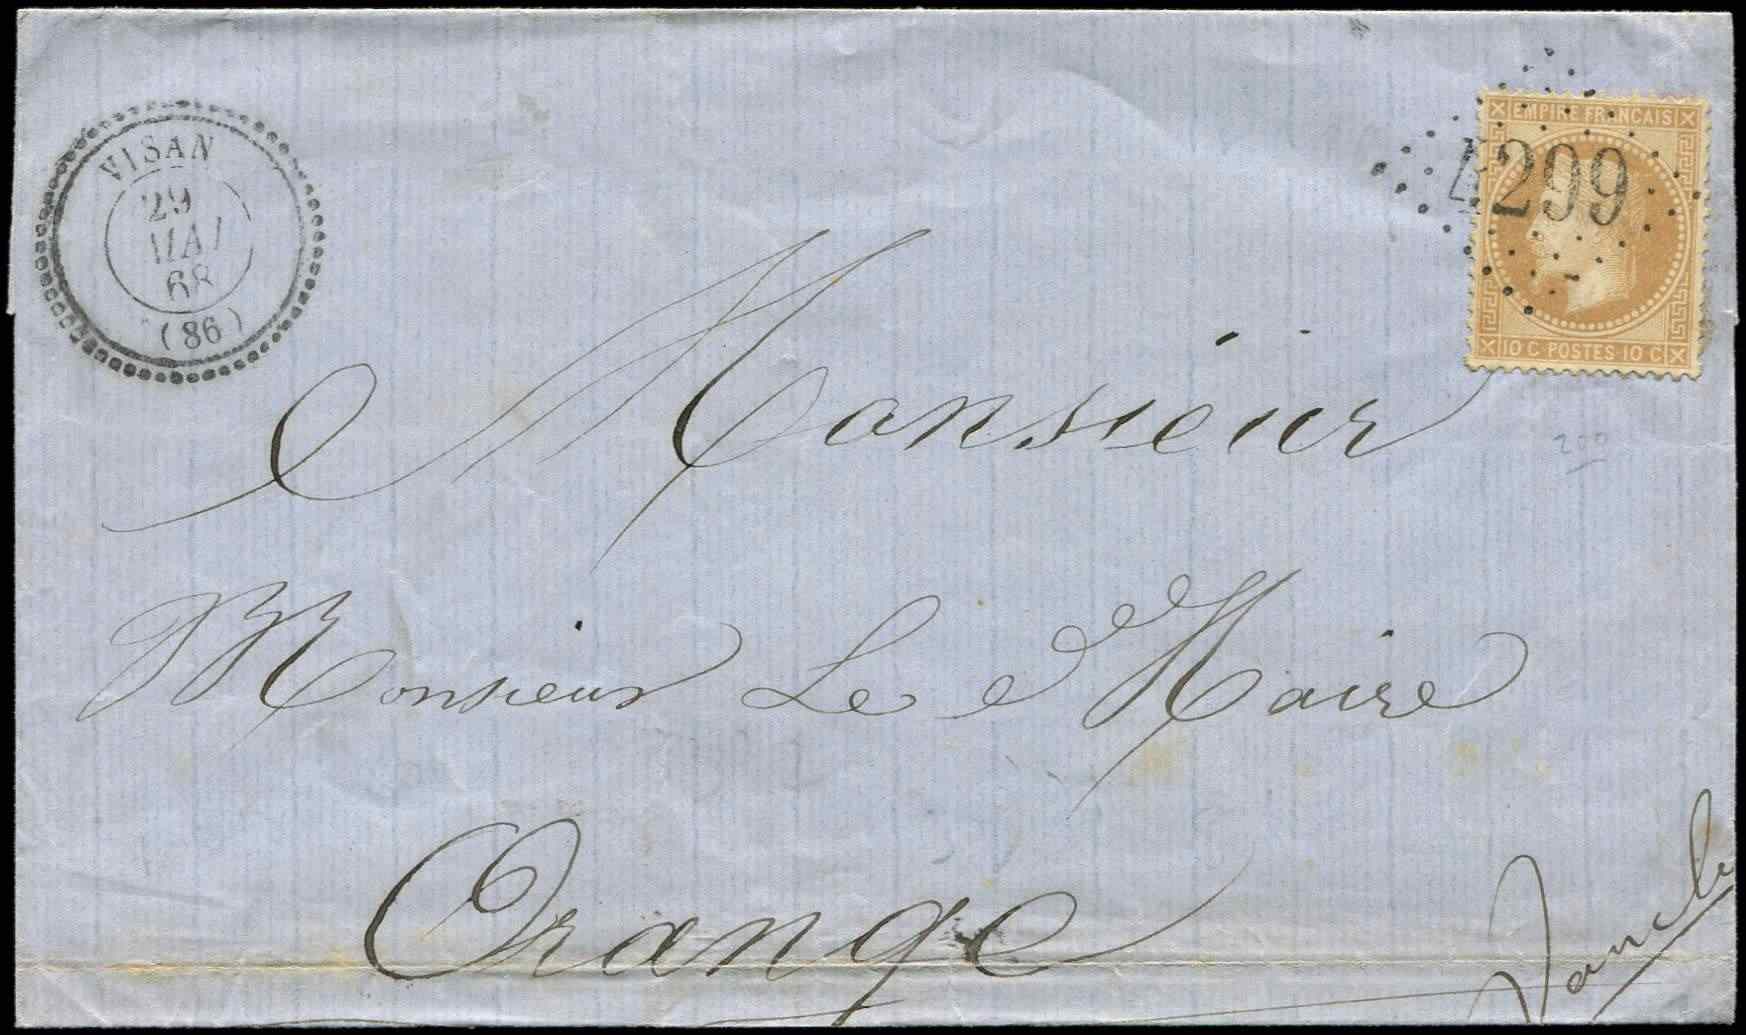 VISAN
29
MAI
68
(86)
EMPIRE FRANCAIS
4299
10 C POSTES 10 C
Monsieur
200
Monsieur Le Maire
Orange